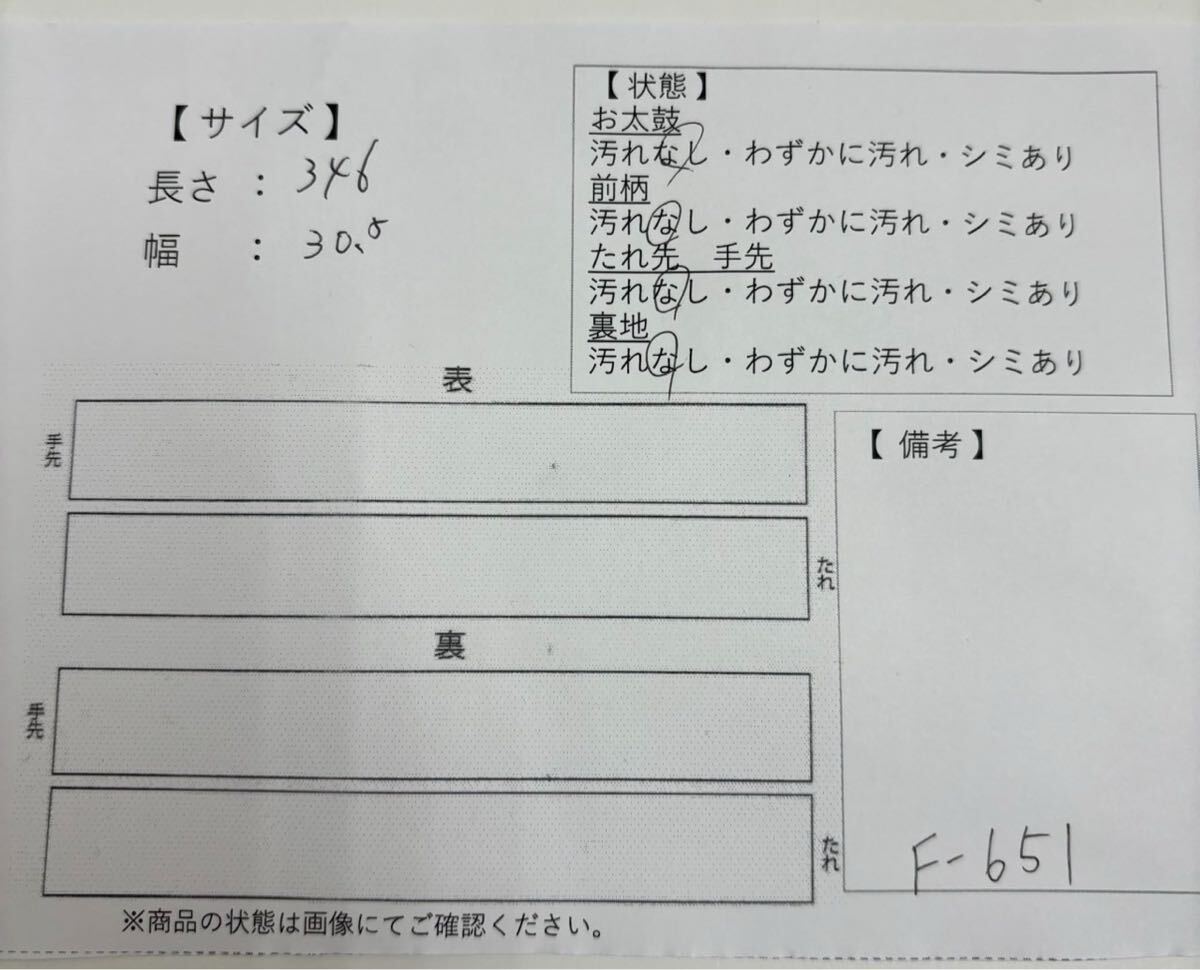 【サイズ】
長さ : 346
幅 : 30.5
【状態】
お太鼓
汚れなし・わずかに汚れ・シミあり
前柄
汚れなし・わずかに汚れ・シミあり
たれ先 手先
汚れなし・わずかに汚れ・シミあり
裏地
汚れなし・わずかに汚れ・シミあり
表
手先
たれ
裏
手先
たれ
【備考】
F-651
※商品の状態は画像にてご確認ください。